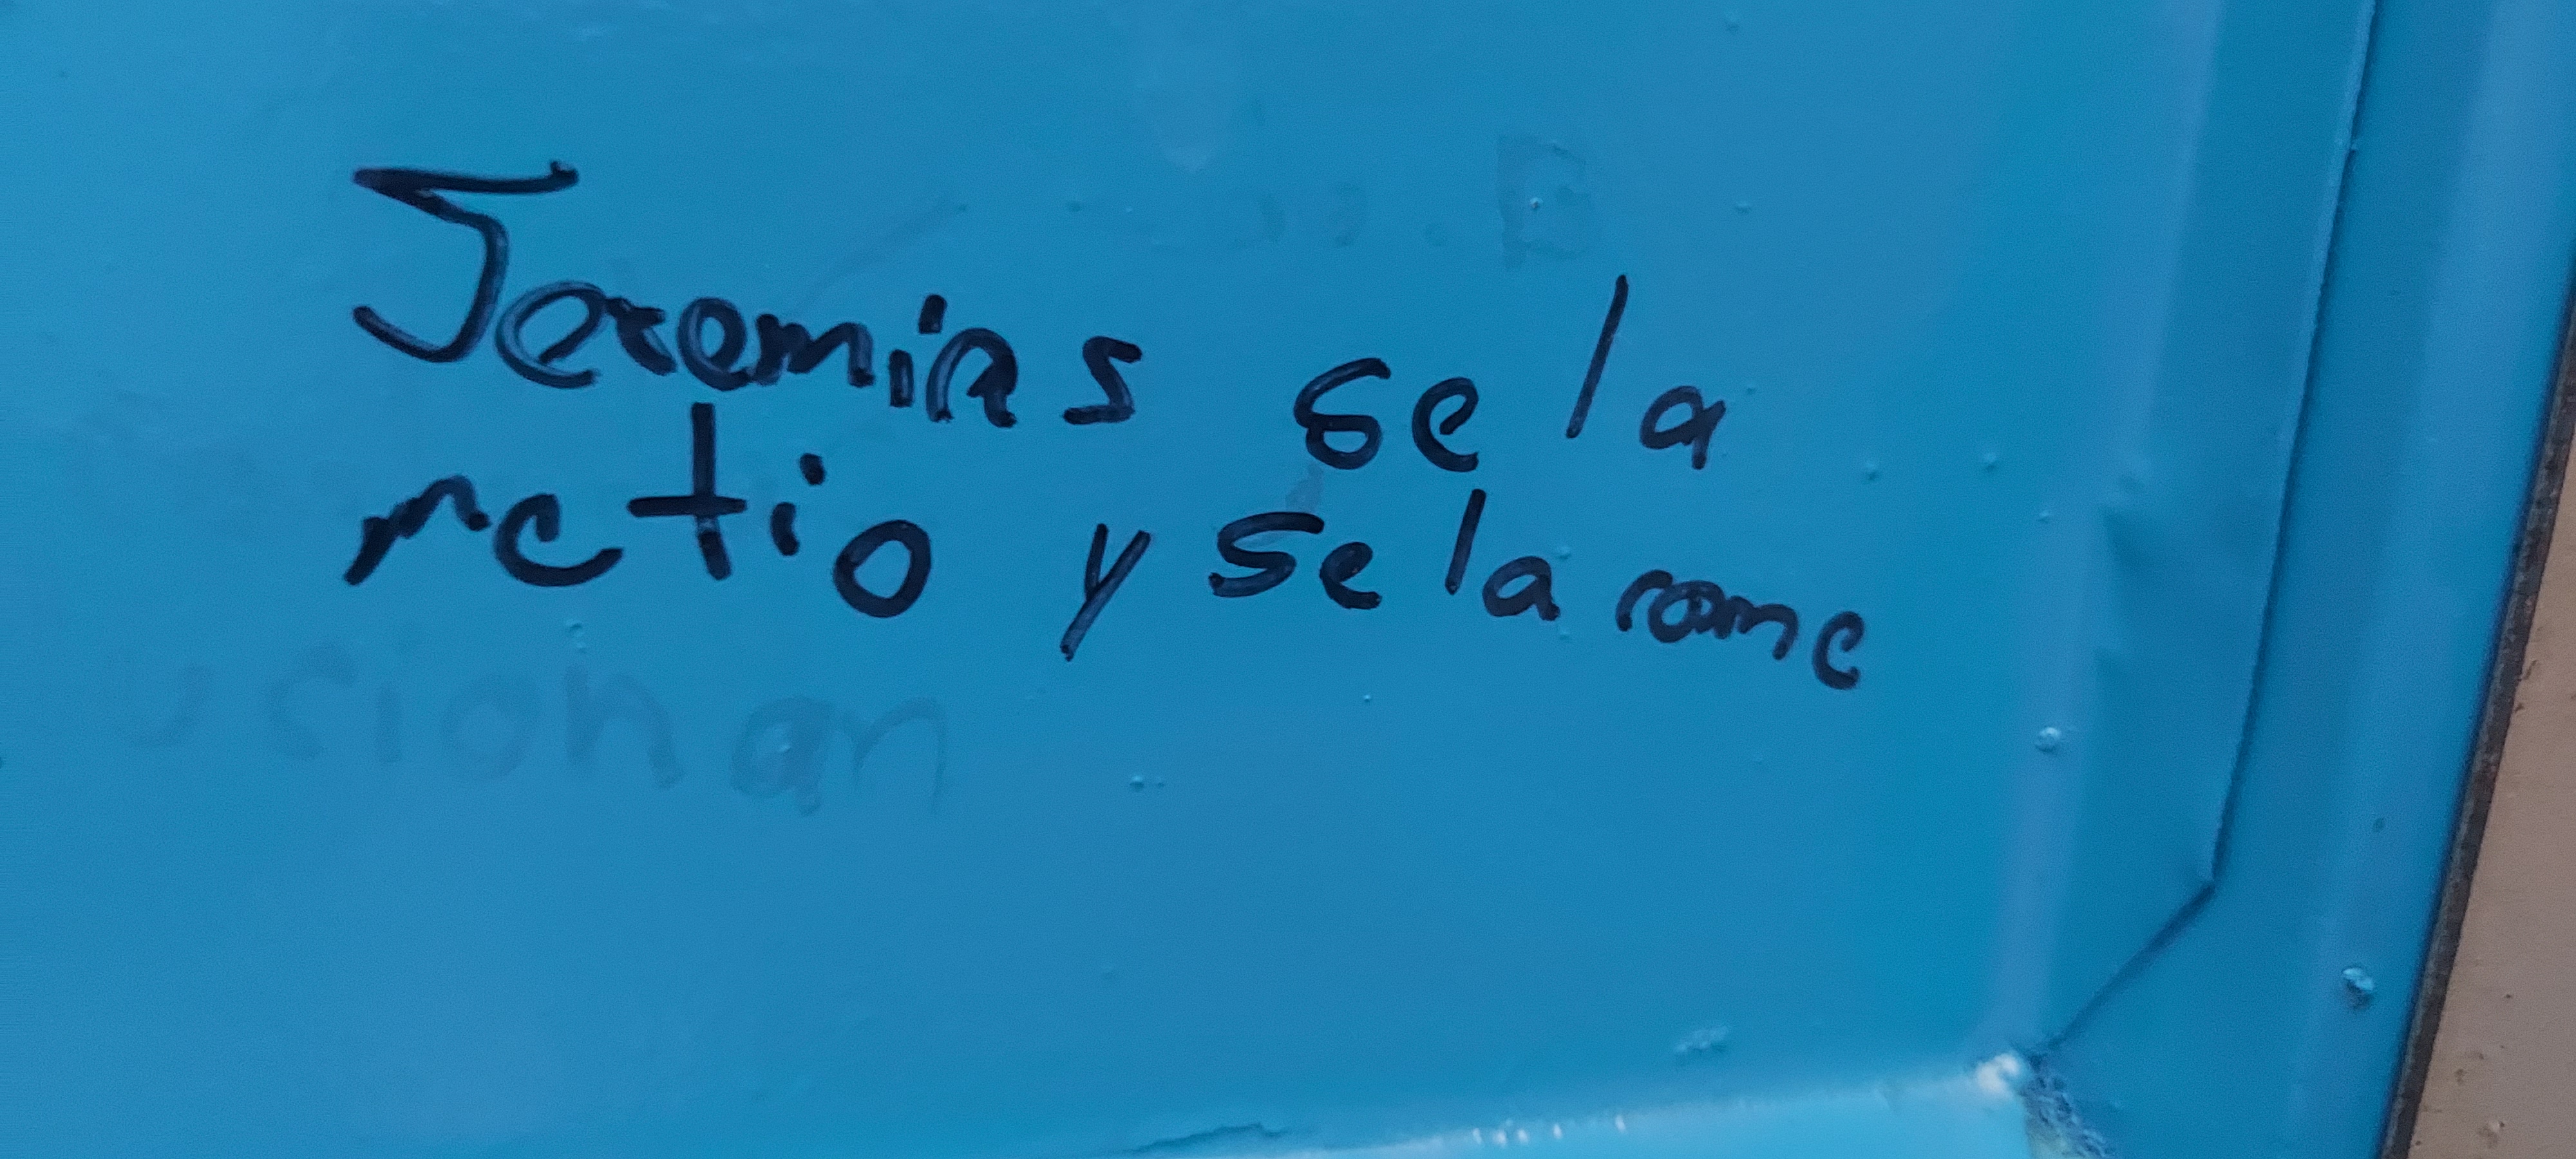 Jeremias se la
metio y se la come